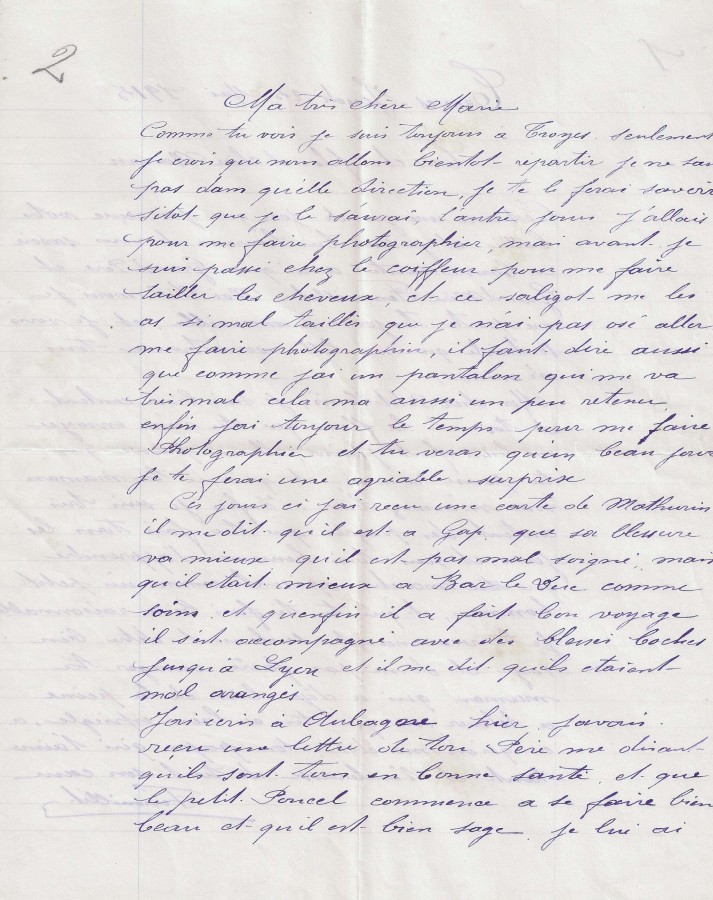 2
Ma très chère Marie
Comme tu vois je suis toujours a Troyes seulement
je crois que nous allons bientot repartir je ne sai
pas dam qu'elle direction, Je te le ferai savoir
sitot que je le saurai, l'autre jour j'allais
pour me faire photographier, mais avant je
suis passé chez le coiffeur pour me faire
tailler les cheveux, et ce saligot me les
as si mal taillés que je n'ai pas osé aller
me faire photographier, il faut dire aussi
que comme j'ai un pantalon qui me va
tres mal cela ma aussi un peu retenu
enfin j'ai toujour le temps pour me faire
Photographier et tu veras qu'un beau jour
Je te ferai une agriable surprise
Ces jours ci j'ai recu une carte de Mathurin
il me dit qu'il est a Gap que sa blessure
va mieux qu'il est pas mal soigné, mais
qu'il etait mieux a Bar le Duc comme
soins et qu'enfin il a fait bon voyage
il s'est accompagné avec des blessés boches
Jusqu'à Lyon et il me dit qu'ils etaient
mal arangés
J'ai écris à Aubagne hier j'avais
recu une lettre de ton Père me disant
qu'ils sont tous en bonne santé et que
le petit Poucel commence a se faire bien
beau et qu'il est bien sage, je lui ai